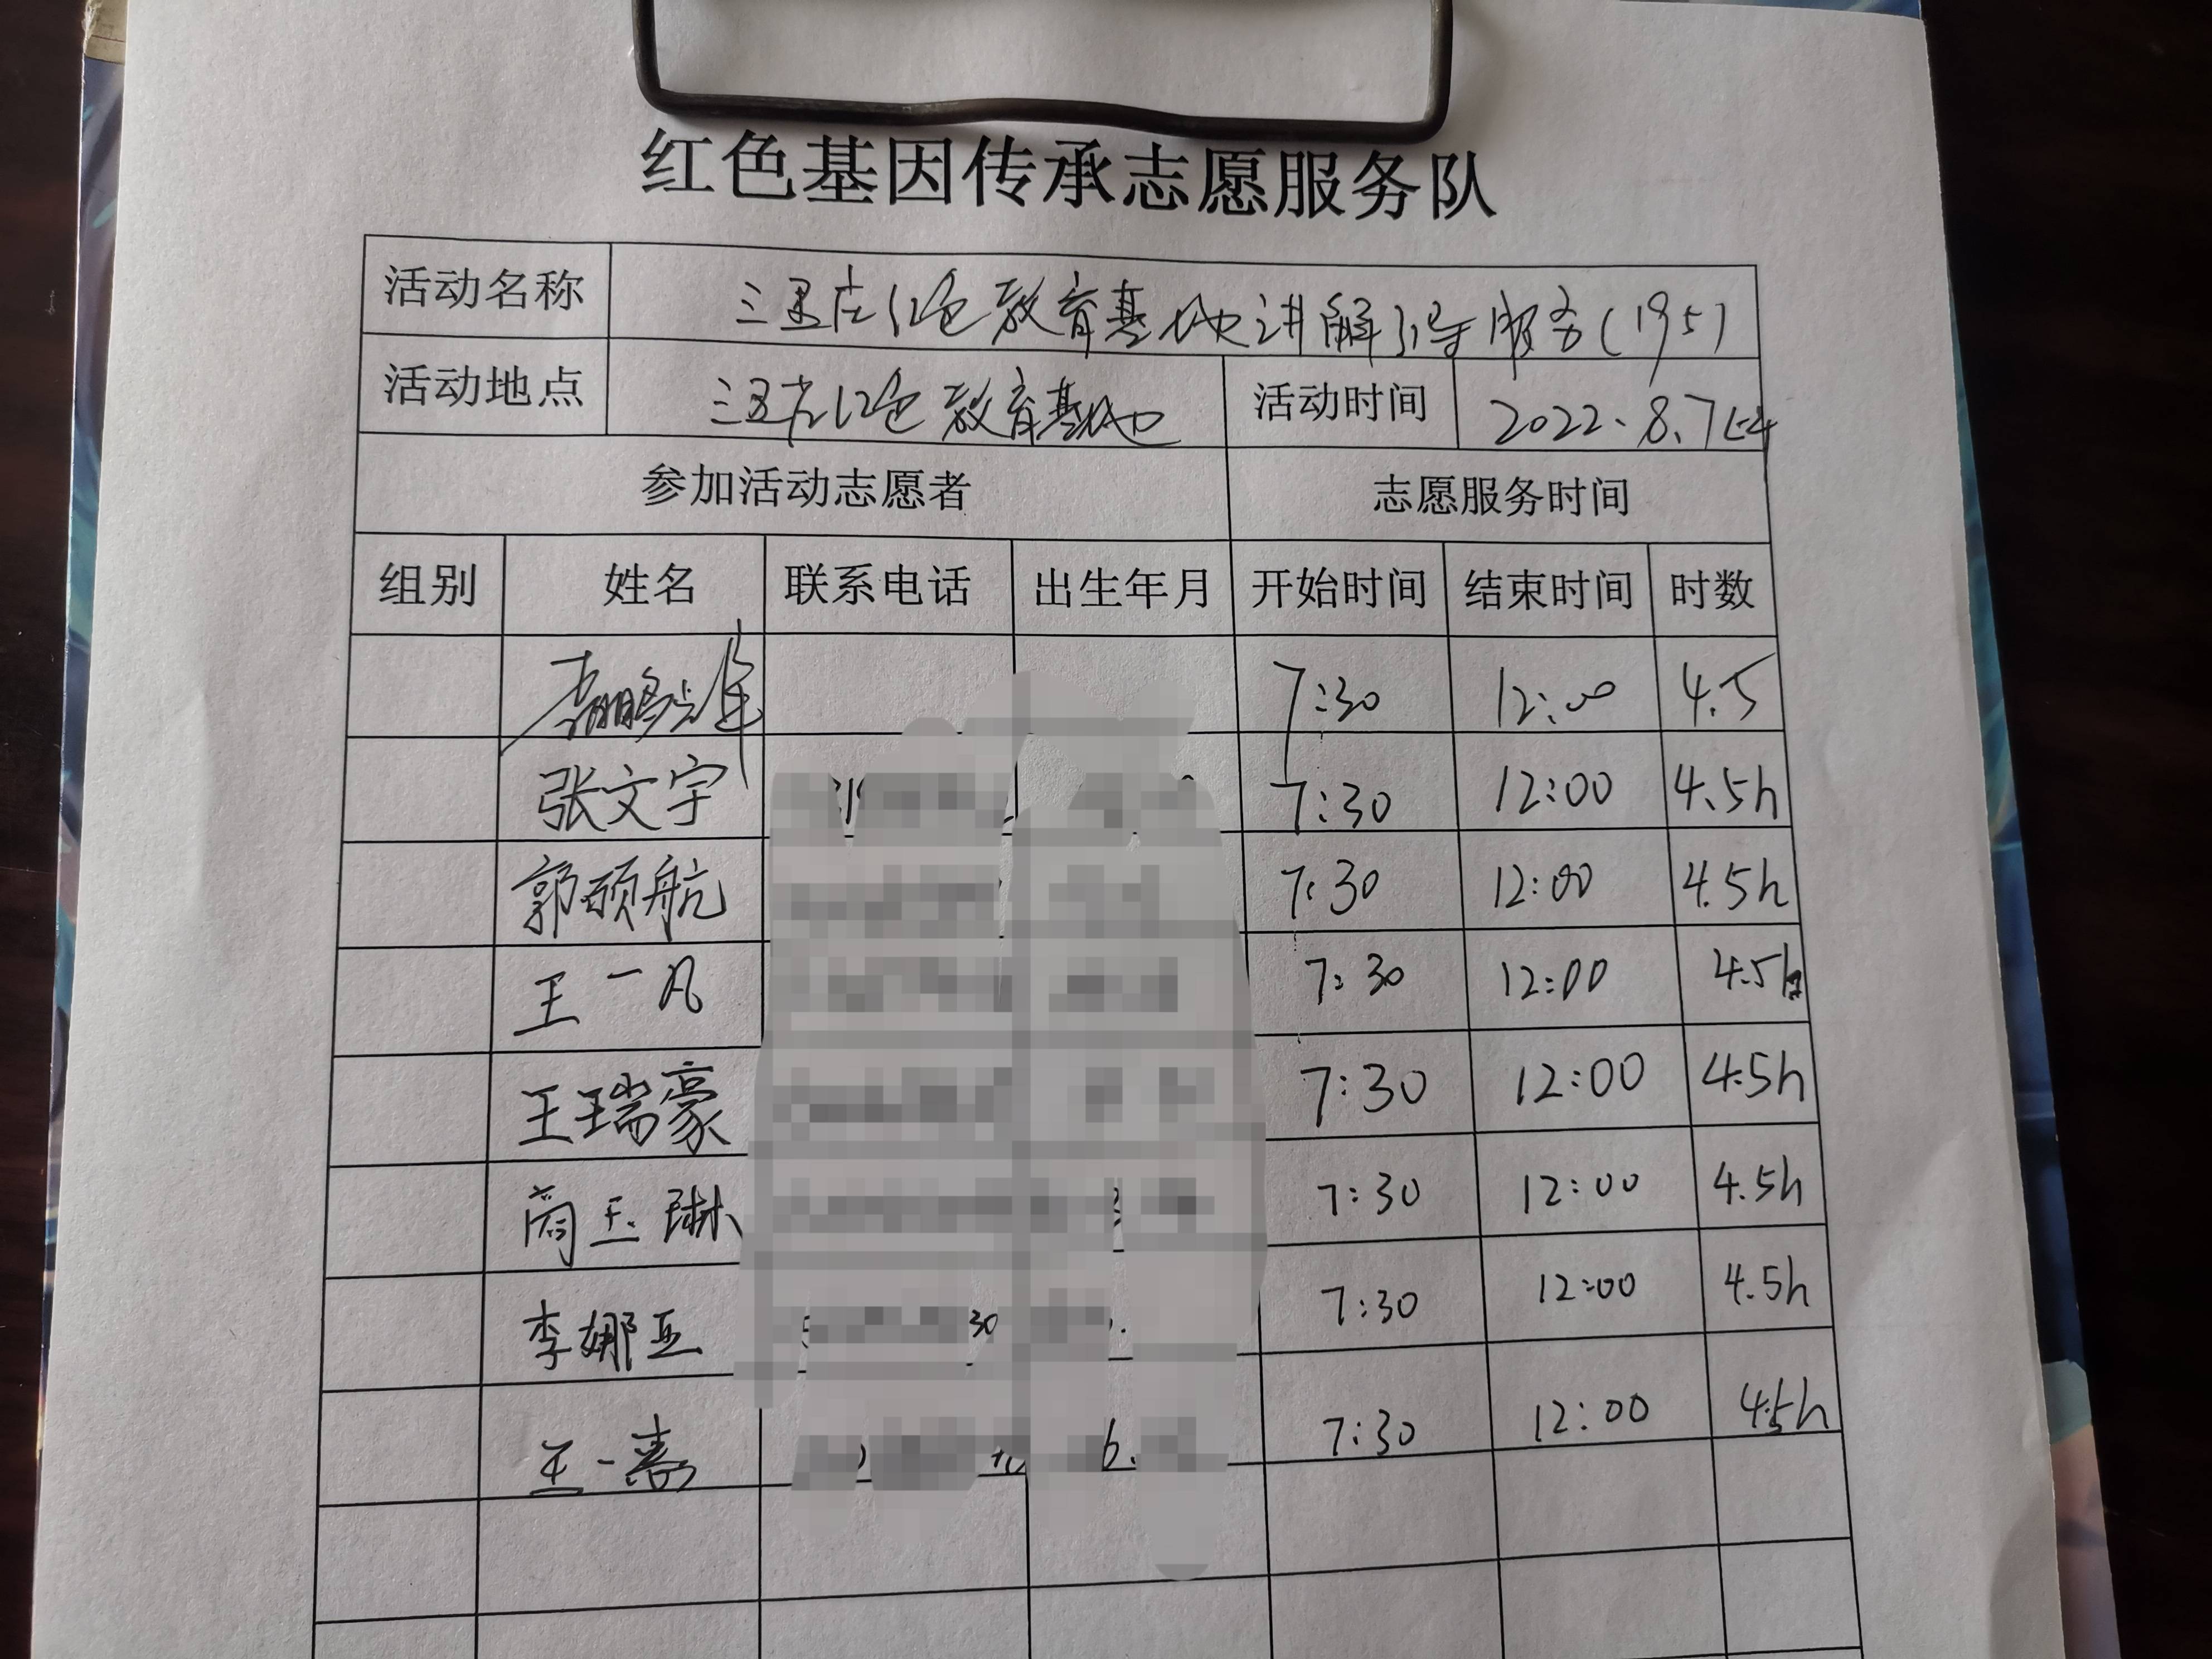 红色基因传承志愿服务队
活动名称 红色教育基地讲解引导服务(195)
活动地点 红色教育基地 活动时间 2022.8.7
参加活动志愿者 志愿服务时间
组别 姓名 联系电话 出生年月 开始时间 结束时间 时数
7:30 12:00 4.5
张文宇 7:30 12:00 4.5h
郭硕航 7:30 12:00 4.5h
王一凡 7:30 12:00 4.5h
王瑞豪 7:30 12:00 4.5h
玉琳 7:30 12:00 4.5h
李娜亚 30 7:30 12:00 4.5h
王一 6. 7:30 12:00 4.5h